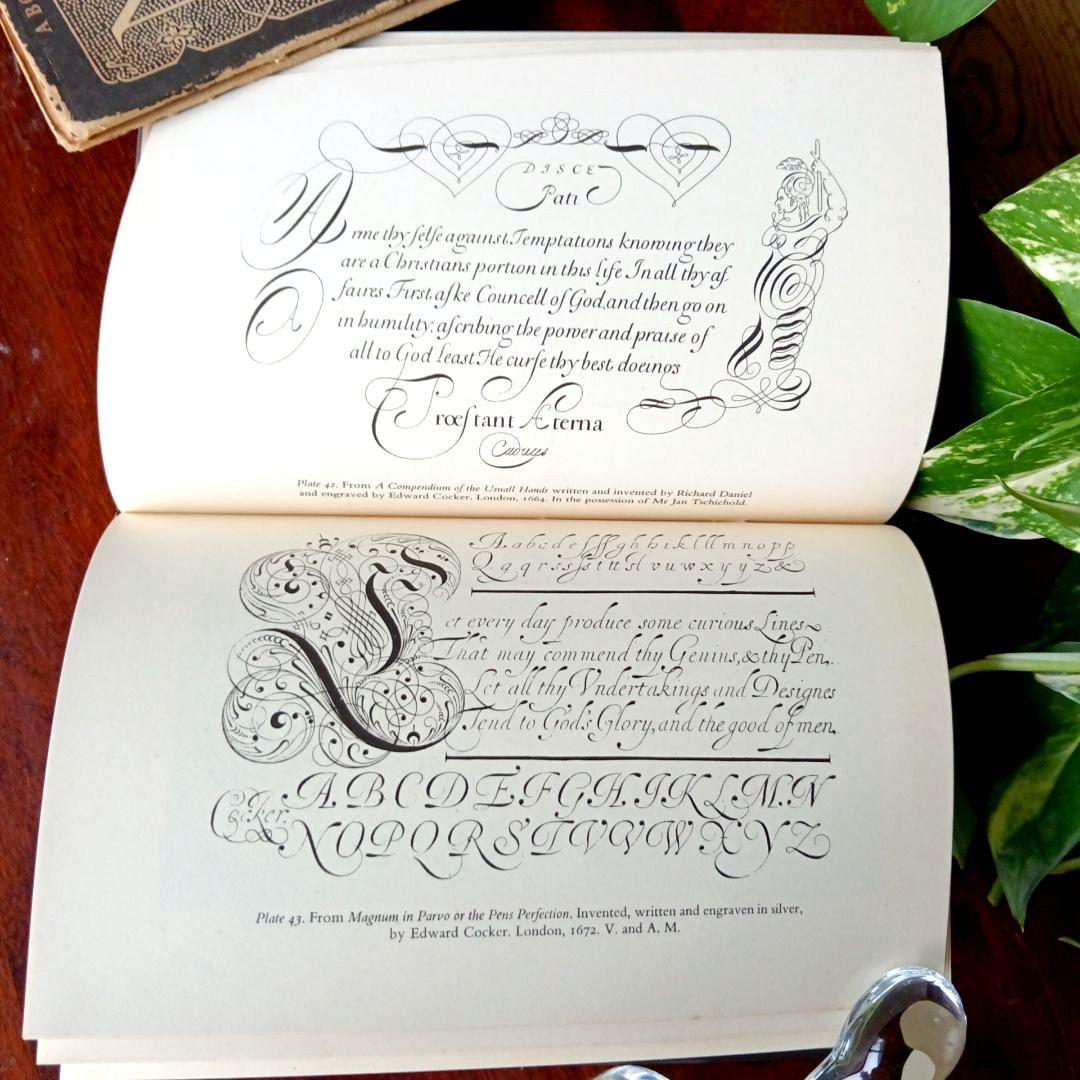 DISCE
Pati
Arme thy ſelfe against Temptations knowing they
are a Christians portion in this life In all thy af
faires First aſke Councell of God, and then go on
in humility: aſcribing the power and praise of
all to God least He curſe thy best doeings
Prœſtant Æterna
Plate 42. From A Compendium of the Usuall Hands written and invented by Richard Daniel
and engraved by Edward Cocker. London, 1664. In the possession of Mr Jan Tschichold.
A a b c d e f g h h i k l m n o p p
Q q q r s t u v w x y y z &
Let every day produce some curious Lines
That may commend thy Genius, & thy Pen.
Let all thy Vndertakings and Designes
Tend to God's Glory, and the good of men.
A B C D E F G H I K L M N
Cocker. N O P Q R S T V V W X Y Z
Plate 43. From Magnum in Parvo or the Pens Perfection. Invented, written and engraven in silver,
by Edward Cocker. London, 1672. V. and A. M.